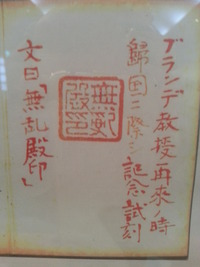 ブランデ教授再来ノ時
歸国ニ際シ記念試刻
無乱
殿印
文曰「無乱殿印」